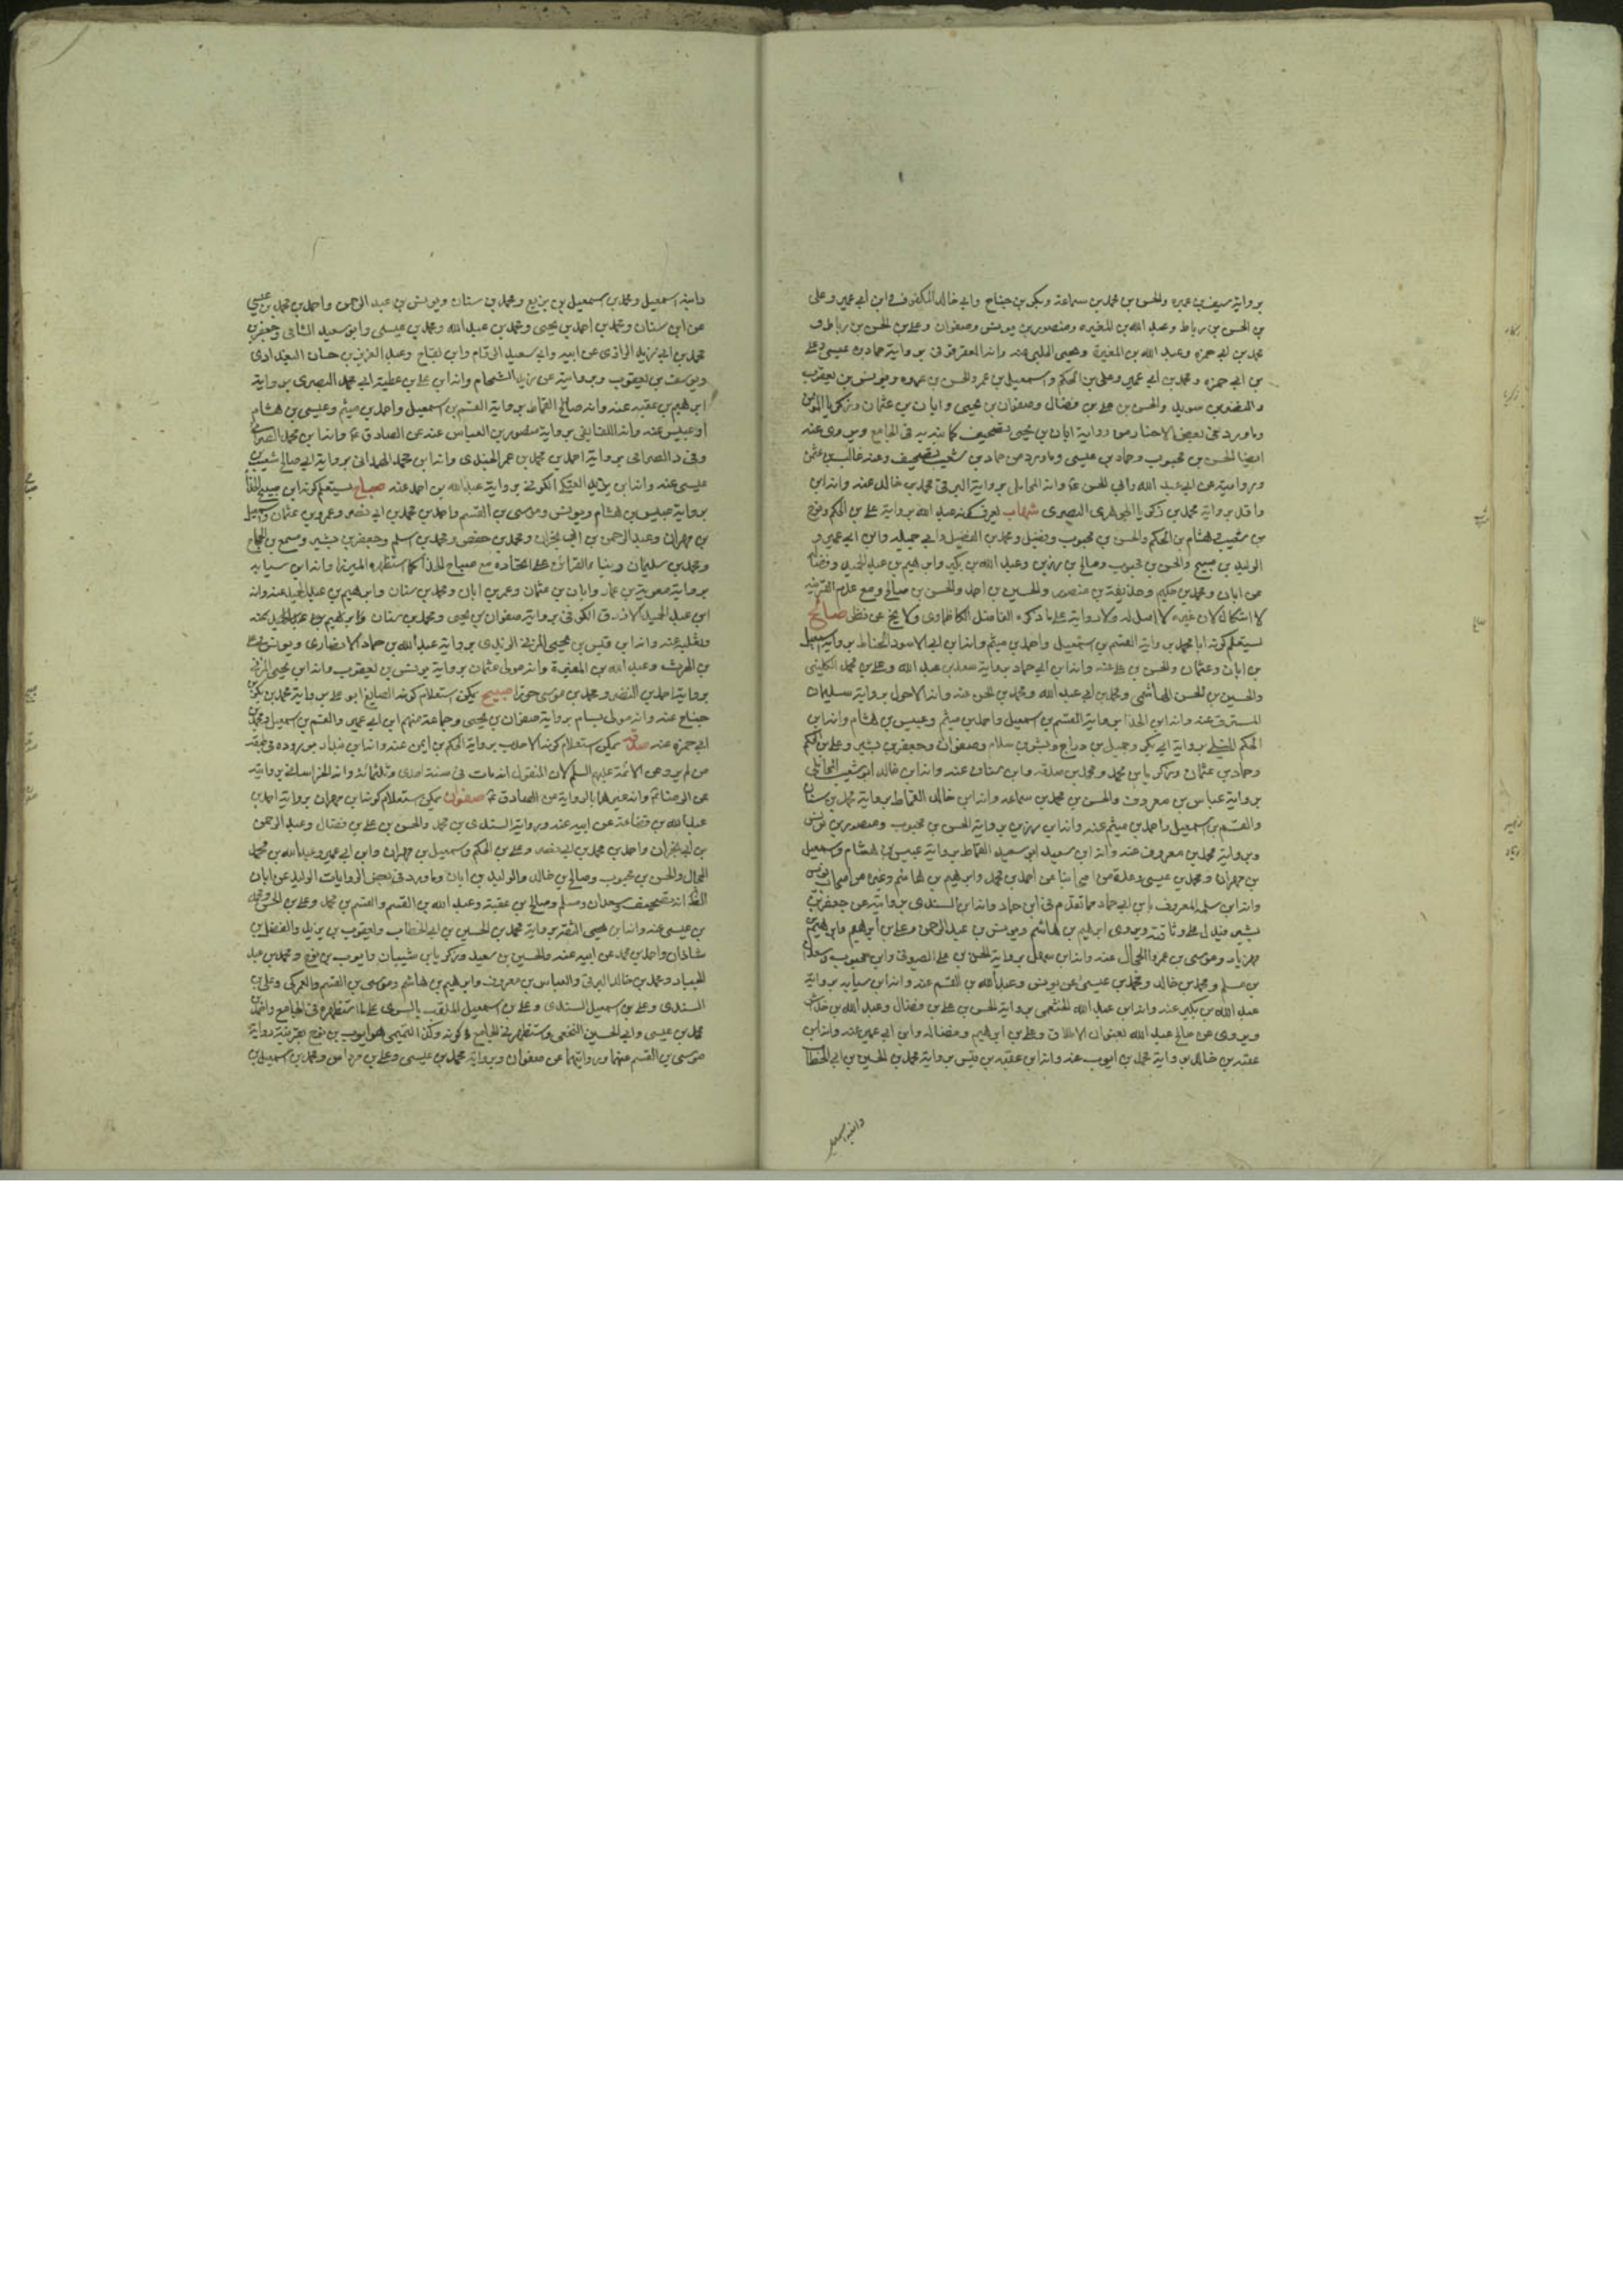 برواية سيف بن عميره والحسن بن محمد بن سماعة وبكر بن جناح وابي خالد المكفوف في ابن ابي عمير وعلى
بن الحسن بن رباط وعبد الله بن المغيره ومنصور بن يونس وصفوان وعلى بن الحسن بن رباط وف
محمد بن ابي حمزه وعبد الله بن المغيرة ويحيى الحلبي عنه وانه العقرقوفى برواية حماد بن عيسى وعلى
بن ابي حمزه ومحمد بن ابي عمير وعلى بن الحكم واسمعيل بن عمر والحسن بن ويونس بن يعقوب
والنضر بن سويد والحسن بن على بن فضال وصفوان بن يحيى وابان بن عثمان وزكريا المؤمن
وما ورد فى بعض الاخبار من رواية ابان بن يحيى تصحيف كما نبه به فى الجامع ويروى عنه
ايضا الحسن بن محبوب وحماد بن عيسى وما ورد من حماد بن شعيب تصحيف وعنه غالب بن عثمن
وبروايته عن ابى عبد الله وابي الحسن ع وانه المحاملى برواية البرقى محمد بن خالد عنه وانه ابن
واقد برواية محمد بن زكريا الجوهرى البصرى شهاب يعرف كونه عبد الله برواية على بن الحكم ونوح
بن شعيب هشام بن الحكم والحسن بن محبوب وفضيل ومحمد بن الفضيل وابي جميله وابن ابي عمير و
الوليد بن صبيح والحسن بن محبوب وصالح بن رزين وعبد الله بن بكير وابرهيم بن عبد الحميد وفضاله
عن ابان ومحمد بن حكيم وحذيفة بن منصور والحسين بن احمد والحسن بن صالح ومع عدم القرينه
لا اشكال لان غيره لا اصل له ولا رواية على ما ذكره الفاضل الكاظماوى ولا يخ عن نظر صالح
يستعلم كونه ابا محمد برواية القسم بن اسمعيل واحمد بن ميثم وانه ابن ابي الاسود الحناط برواية اسمعيل
بن ابان وعثمان والحسن بن على عنه وانه ابن ابي حماد برواية سعد بن عبد الله وعلى بن محمد الكلينى
والحسين بن الحسن الهاشمى ومحمد بن ابي عبد الله ومحمد بن الحسن عنه وانه الاحول برواية سليمان
المسترق عنه وانه ابن الحذا برواية القسم بن اسمعيل واحمد بن ميثم وعبيس بن هشام وانه ابن
الحكم النيلى برواية ابن بكر وجميل بن دراج وبشر بن سلام وصفوان وجعفر بن بشير وعلى بن الحكم
وحماد بن عثمان وزكريا بن محمد ومحمد بن صدقه وابن سنان عنه وانه ابن خالد ابو شعيب المحاملى
برواية عباس بن معروف والحسن بن محمد بن سماعه وانه ابن خالد القماط برواية محمد بن سنان
والقسم بن اسمعيل واحمد بن ميثم عنه وانه ابن رزين برواية الحسن بن محبوب ومنصور بن يونس
وبرواية محمد بن معروف عنه وانه ابن سعيد ابو سعيد القماط برواية عبيس بن هشام واسمعيل
بن مهران ومحمد بن عيسى وعدة من اصحابنا عن احمد بن محمد وابرهيم بن هاشم وغيره من اصحاب يونس
وانه ابن سلمه المعروف بابن ابي حماد مما تقدم فى ابن حماد وانه ابن السندى بروايته عن جعفر بن
بشير فيدل على وثاقته ويروى ابرهيم بن هاشم ويونس بن عبد الرحمن وعلى بن ابرهيم وابرهيم بن
مهزيار وموسى بن عمر والحجال عنه وانه ابن سهل برواية الحسن بن على الصوفى وابن محبوب وسعدان
بن مسلم ومحمد بن خالد ومحمد بن عيسى عن يونس وعبد الله بن القسم عنه وانه ابن سيابه برواية
عبد الله بن بكير عنه وانه ابن عبد الله الخثعمى برواية الحسن بن على بن فضال وعبد الله بن خداش
ويروى عن صالح عبد الله بعنوان الاطلاق وعلى بن ابرهيم وفضاله وابن ابي عمير عنه وانه ابن
عقبه بن خالد برواية محمد بن ايوب عنه وانه ابن عقبه بن قيس برواية محمد بن الحسين بن ابي الخطاب
وابنه اسمعيل
وابنه اسمعيل ومحمد بن اسمعيل بن بزيع ومحمد بن سنان ويونس بن عبد الرحمن واحمد بن محمد بن عيسى
عن ابن سنان ومحمد بن احمد بن يحيى ومحمد بن عبد الله ومحمد بن عيسى وابو سعيد الشافى وجعفر بن
محمد بن ابي زيد الرازى عن ابيه وابي سعيد الزام وابن بقاح وعبد العزيز بن حسان البغدادى
ويوسف بن يعقوب وبروايته عن زيد الشحام وانه ابن على بن عطيه ابي محمد البصرى برواية
ابرهيم بن عقبه عنه وانه صالح القماط برواية القسم بن اسمعيل واحمد بن ميثم وعيسى بن هشام
او عبيس عنه وانه اللفايفى برواية منصور بن العباس عنه عن الصادق ع وانه ابن محمد الصرامى
وفى د الصرامى برواية احمد بن محمد بن عمر الجندى وانه ابن محمد الهمدانى برواية ابي صالح شعيب بن
عيسى عنه وانه ابن يزيد العتكى الكوفى برواية عبد الله بن احمد عنه صباح يستعلم كونه ابن صبيح الحذا
برواية عبيس بن هشام ويونس وموسى بن القسم واحمد بن محمد بن ابي نصر وعمرو بن عثمان واسمعيل
بن مهران وعبد الرحمن بن ابي نجران ومحمد بن حفص ومحمد بن اسلم وجعفر بن بشير ومسمع بن الحجاج
ومحمد بن سليمان وبنا بالقرائن على اتحاده مع صباح الحذا كما استظهره الميرزا وانه ابن سيابه
برواية معوية بن عمار وابان بن عثمان وعمر بن ابان ومحمد بن سنان وابرهيم بن عبد الحميد عنه وانه
ابن عبد الحميد الازرق الكوفى برواية صفوان بن يحيى ومحمد بن سنان وابرهيم بن عبد الحميد عنه
وثعلبه عنه وانه ابن قيس بن يحيى المزنى الزيدى برواية عبد الله بن حماد الانصارى ويونس بن على
بن الحرث وعبد الله بن المغيرة وانه مولى عثمان برواية يونس بن يعقوب وانه ابن يحيى المزنى
برواية احمد بن النضر ومحمد بن موسى حورا صبيح يمكن استعلام كونه الصايغ ابو على برواية محمد بن بكر بن
جناح عنه وانه مولى بسام برواية صفوان بن يحيى وجماعة منهم ابن ابي عمير والقسم بن اسمعيل ومحمد بن
ابي حمزه عنه صدقه يمكن استعلام كونه الاحدب برواية الحكم بن ايمن عنه وانه ابن بندار بوروده فى عقد
من لم يرو عن الائمة عليهم السلم لان المنقول انه مات فى سنة احدى وثلثمائة وانه الخراسانى بروايته
عن الرضا ع وانه غيرهما بالرواية من الصادق ع صفوان يمكن استعلام كونه ابن مهران برواية احمد بن
عبد الله بن قضاعة عن ابيه عنه وبرواية السندى بن محمد والحسن بن على بن فضال وعبد الرحمن
بن ابي نجران واحمد بن محمد بن ابي نصر وعلى بن الحكم واسمعيل بن مهران وابن ابي عمير وعبد الله بن محمد
الحجال والحسن بن محبوب وصالح بن خالد والوليد بن ابان وما ورد فى بعض الروايات الوليد عن ابان
الظ انه تصحيف وسعدان ومسلم وصالح بن عقبة وعبد الله بن القسم والقسم بن محمد وعلى بن الحسن ومحمد
بن عيسى عنه وانه ابن يحيى الثقه برواية محمد بن الحسين بن ابي الخطاب ويعقوب بن يزيد والفضل بن
شاذان واحمد بن محمد عن ابيه عنه والحسين بن سعيد وزكريا بن شيبان وايوب بن نوح ومحمد بن عبد
الجبار ومحمد بن خالد البرقى والعباس بن معروف وابرهيم بن هاشم وموسى بن القسم والعمركى وعلى بن
السندى وعلى بن اسمعيل السندى وعلى بن اسمعيل الملقب بالسرى على ما استظهره فى الجامع واحمد بن
محمد بن عيسى وابي الحسين النخعى واستظهر فى الجامع كونه وكذا التميمى هو ايوب بن نوح بقرينة رواية
موسى بن القسم عنهما وروايتهما عن صفوان وبرواية محمد بن عيسى وعلى بن مرداس ومحمد بن اسمعيل بن